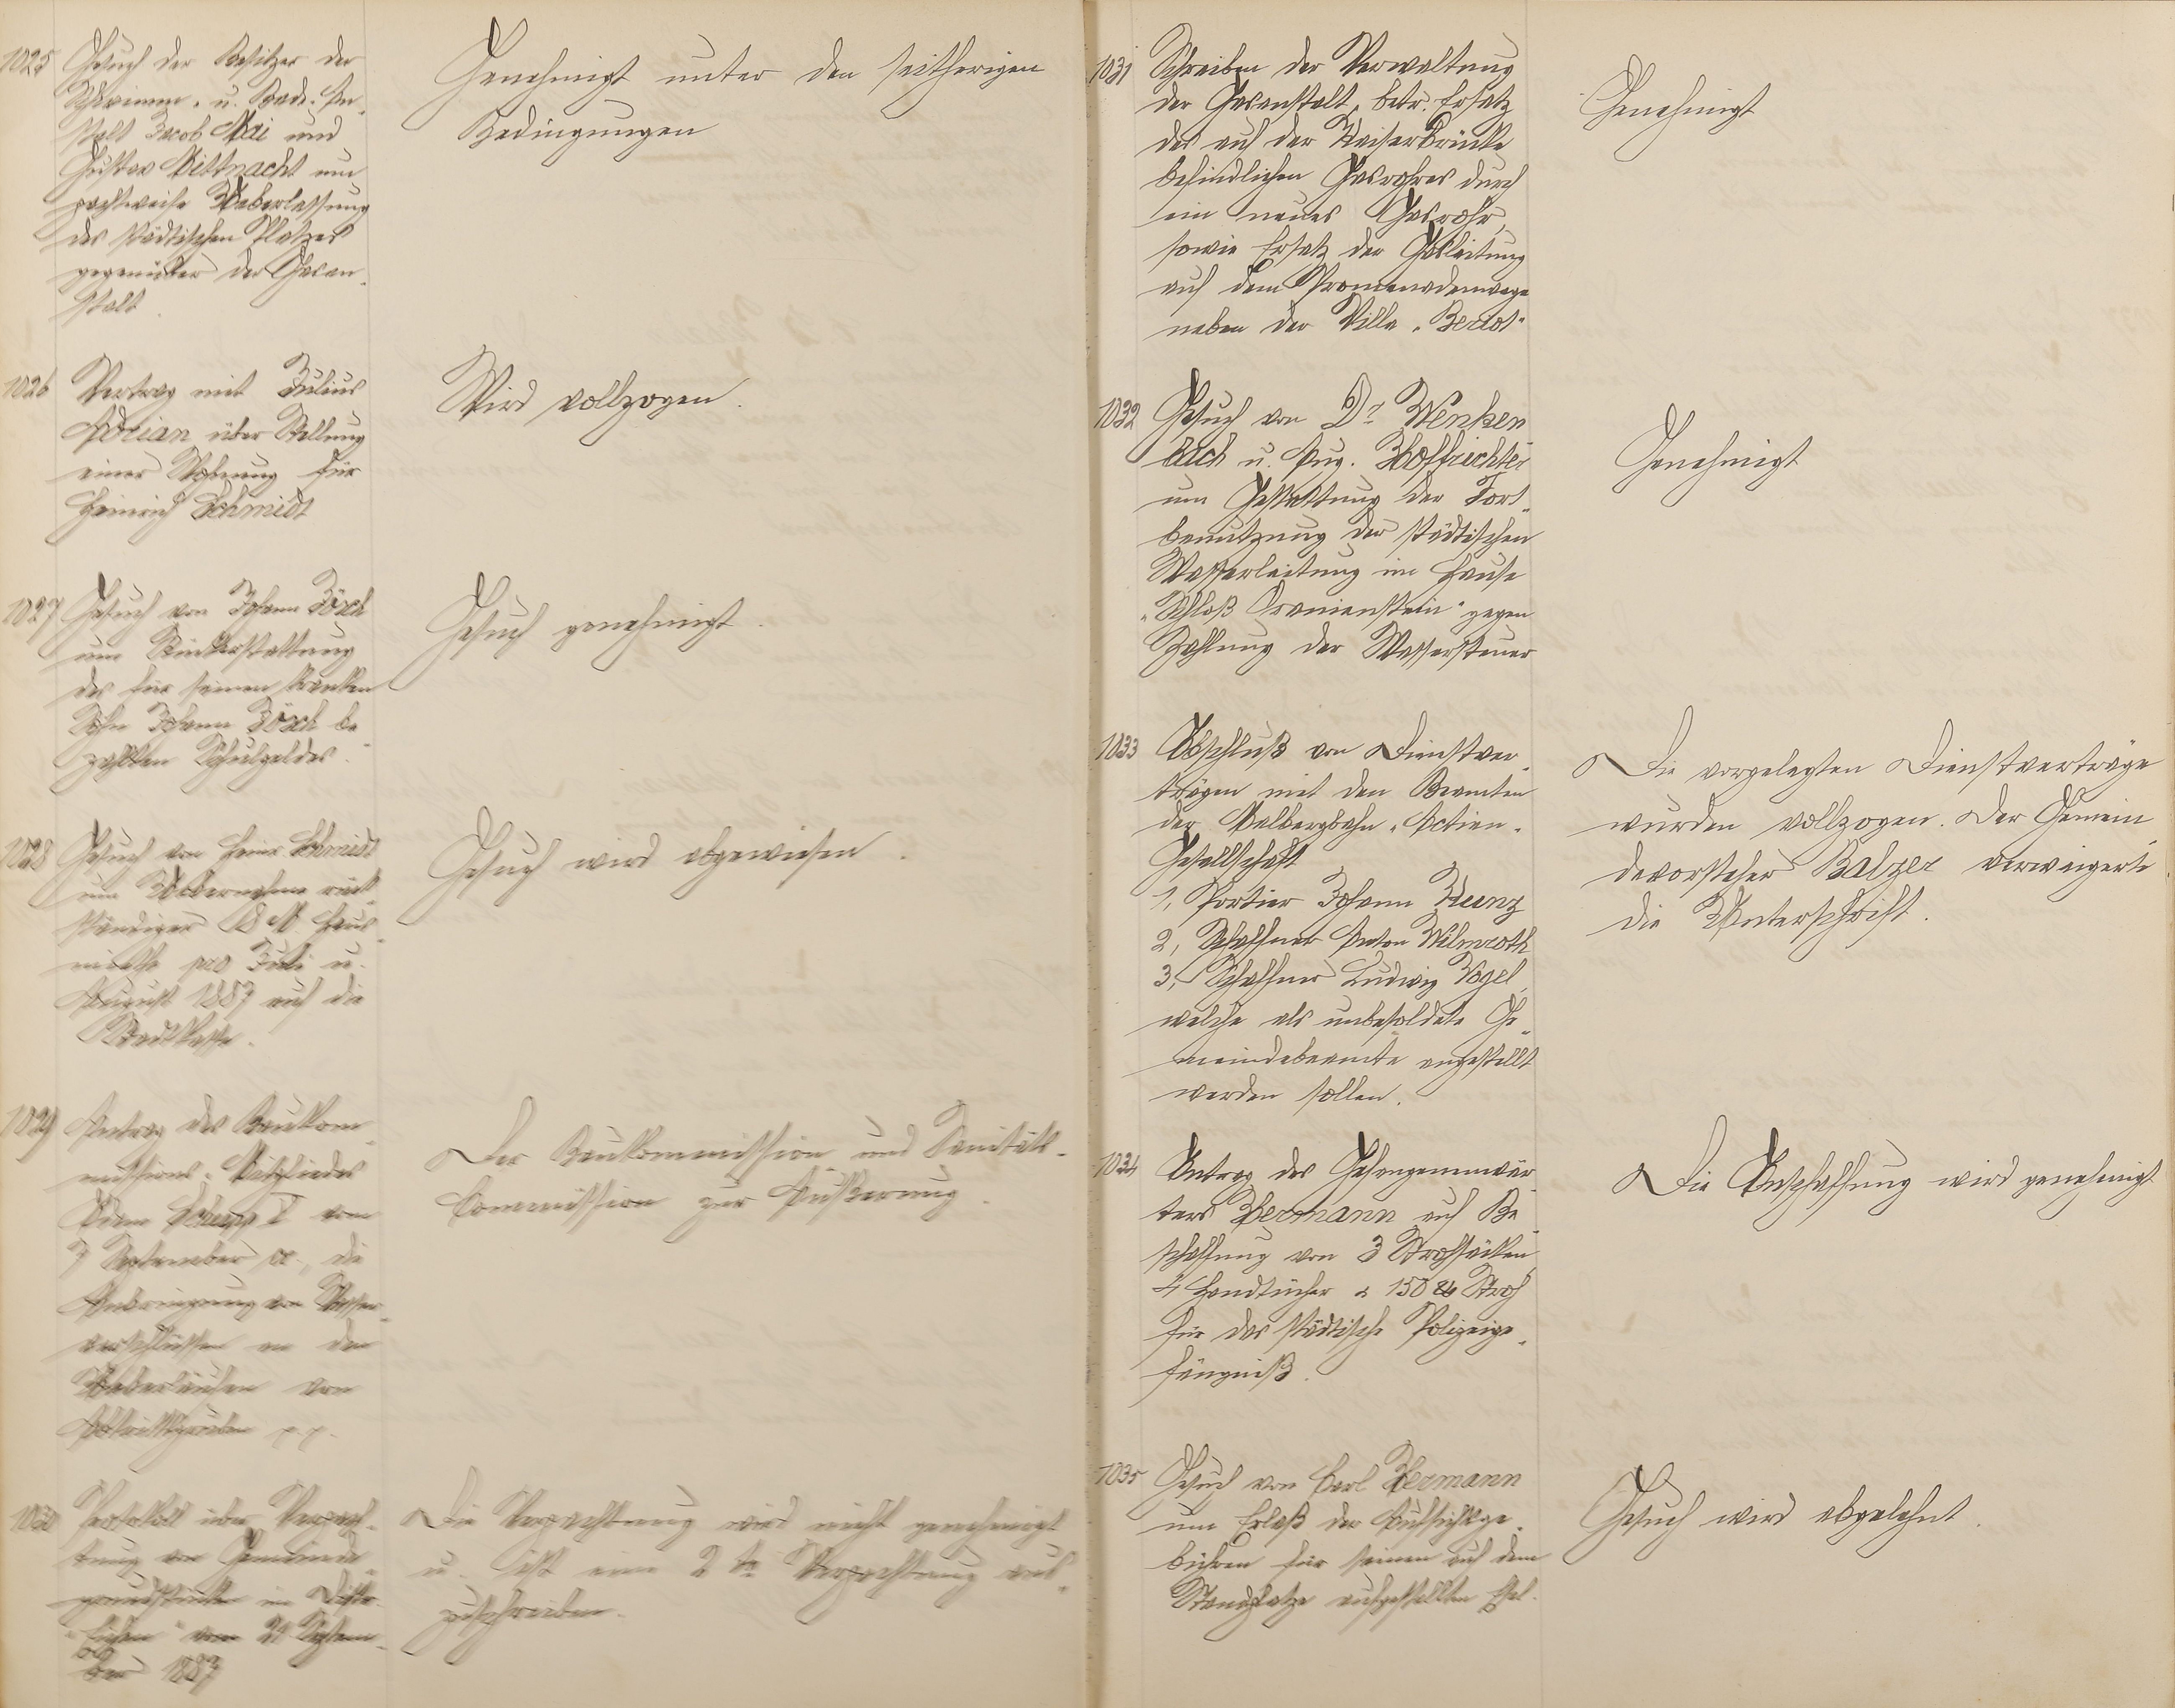 1025 Gesuch der Besitzer der
Schwimm- u. Bade-An-
stalt Jacob Mai und
Gustav Bittnacht um
pachtweise Ueberlassung
des städtischen Platzes
gegenüber der Gasan-
stalt.
Genehmigt unter den seitherigen
Bedingungen
1026 Vertrag mit Julius
Adrian über Stellung
einer Wohnung für
Heinrich Schmidt
Wird vollzogen.
1027 Gesuch von Johann
um Rückerstattung
des für seinen kranken
Sohn Johann be-
zahlten Schulgeldes.
Gesuch genehmigt.
1028 Gesuch von Heinr Schmidt
um Uebernahme rück-
ständiger 18 M Haus-
miethe pro Juli u.
August 1887 auf die
Stadtkasse.
Gesuch wird abgewiesen.
1029 Antrag des Baukom-
missions-Mitgliedes
Adam I vom
7 September cr., die
Anbringung von Wasser-
verschlüssen an den
Ueberläufen von
Abtrittgruben p.p.
Der Baukommission und Sanitäts-
Commission zur Äußerung.
1030 Protokoll über Verpach-
tung von Gemeinde-
grundstücken im Distr.
"Eichen" vom 21 Septem-
ber 1887
Die Verpachtung wird nicht genehmigt
u. ist eine 2te Verpachtung aus-
zuschreiben.
1031 Schreiben der Verwaltung
der Gasanstalt, betr. Ersatz
des auf der Kaiserbrücke
befindlichen Gasrohres durch
ein neues Gasrohr,
sowie Ersatz der Gasleitung
auf dem Promenadenwege
neben der Villa "Beriot"
Genehmigt
1032 Gesuch von Dr Wenken
bach u. Aug. Hoffrichter
um Gestattung der Fort-
benutzung der städtischen
Wasserleitung im Hause
"Schloß Oranienstein" gegen
Zahlung der Wassersteuer
Genehmigt
1033 Abschluß von Dienstver-
trägen mit den Beamten
der Malbergbahn-Actien-
Gesellschaft
1, Portier Johann Kunz
2, Schaffner Anton Wilmroth
3, Schaffner Ludwig Vogel,
welche als unbesoldete Ge-
meindebeamte angestellt
werden sollen.
Die vorgelegten Dienstverträge
wurden vollzogen. Der Gemein-
devorsteher Balzer verweigerte
die Unterschrift.
1034 Antrag des Gefangenenwär-
ters Hermann auf Be-
schaffung von 3 Strohsäcken,
4 Handtücher u 150 ℔ Stroh
für das städtische Polizeige-
fängniß.
Die Anschaffung wird genehmigt
1035 Gesuch von Carl Hermann
um Erlaß der Aufsichtsge-
bühren für seinen auf dem
Standplatze aufgestellten Esel.
Gesuch wird abgelehnt.